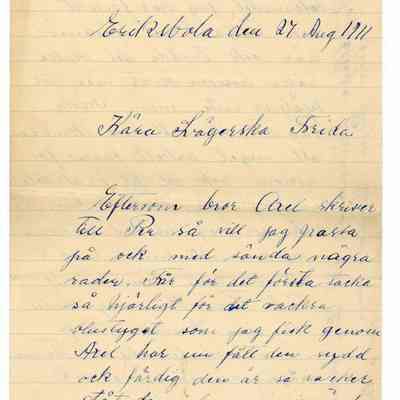 Eriksbola den 27 Aug 1911
Kära Svägerska Frida.
Eftersom bror Axel skriver
till Per så vill jag passa
på och med sända några
rader. Får för det första tacka
så hjärligt för det vackra
som jag fick genom
Axel har nu fått den sydd
och färdig den är så vacker